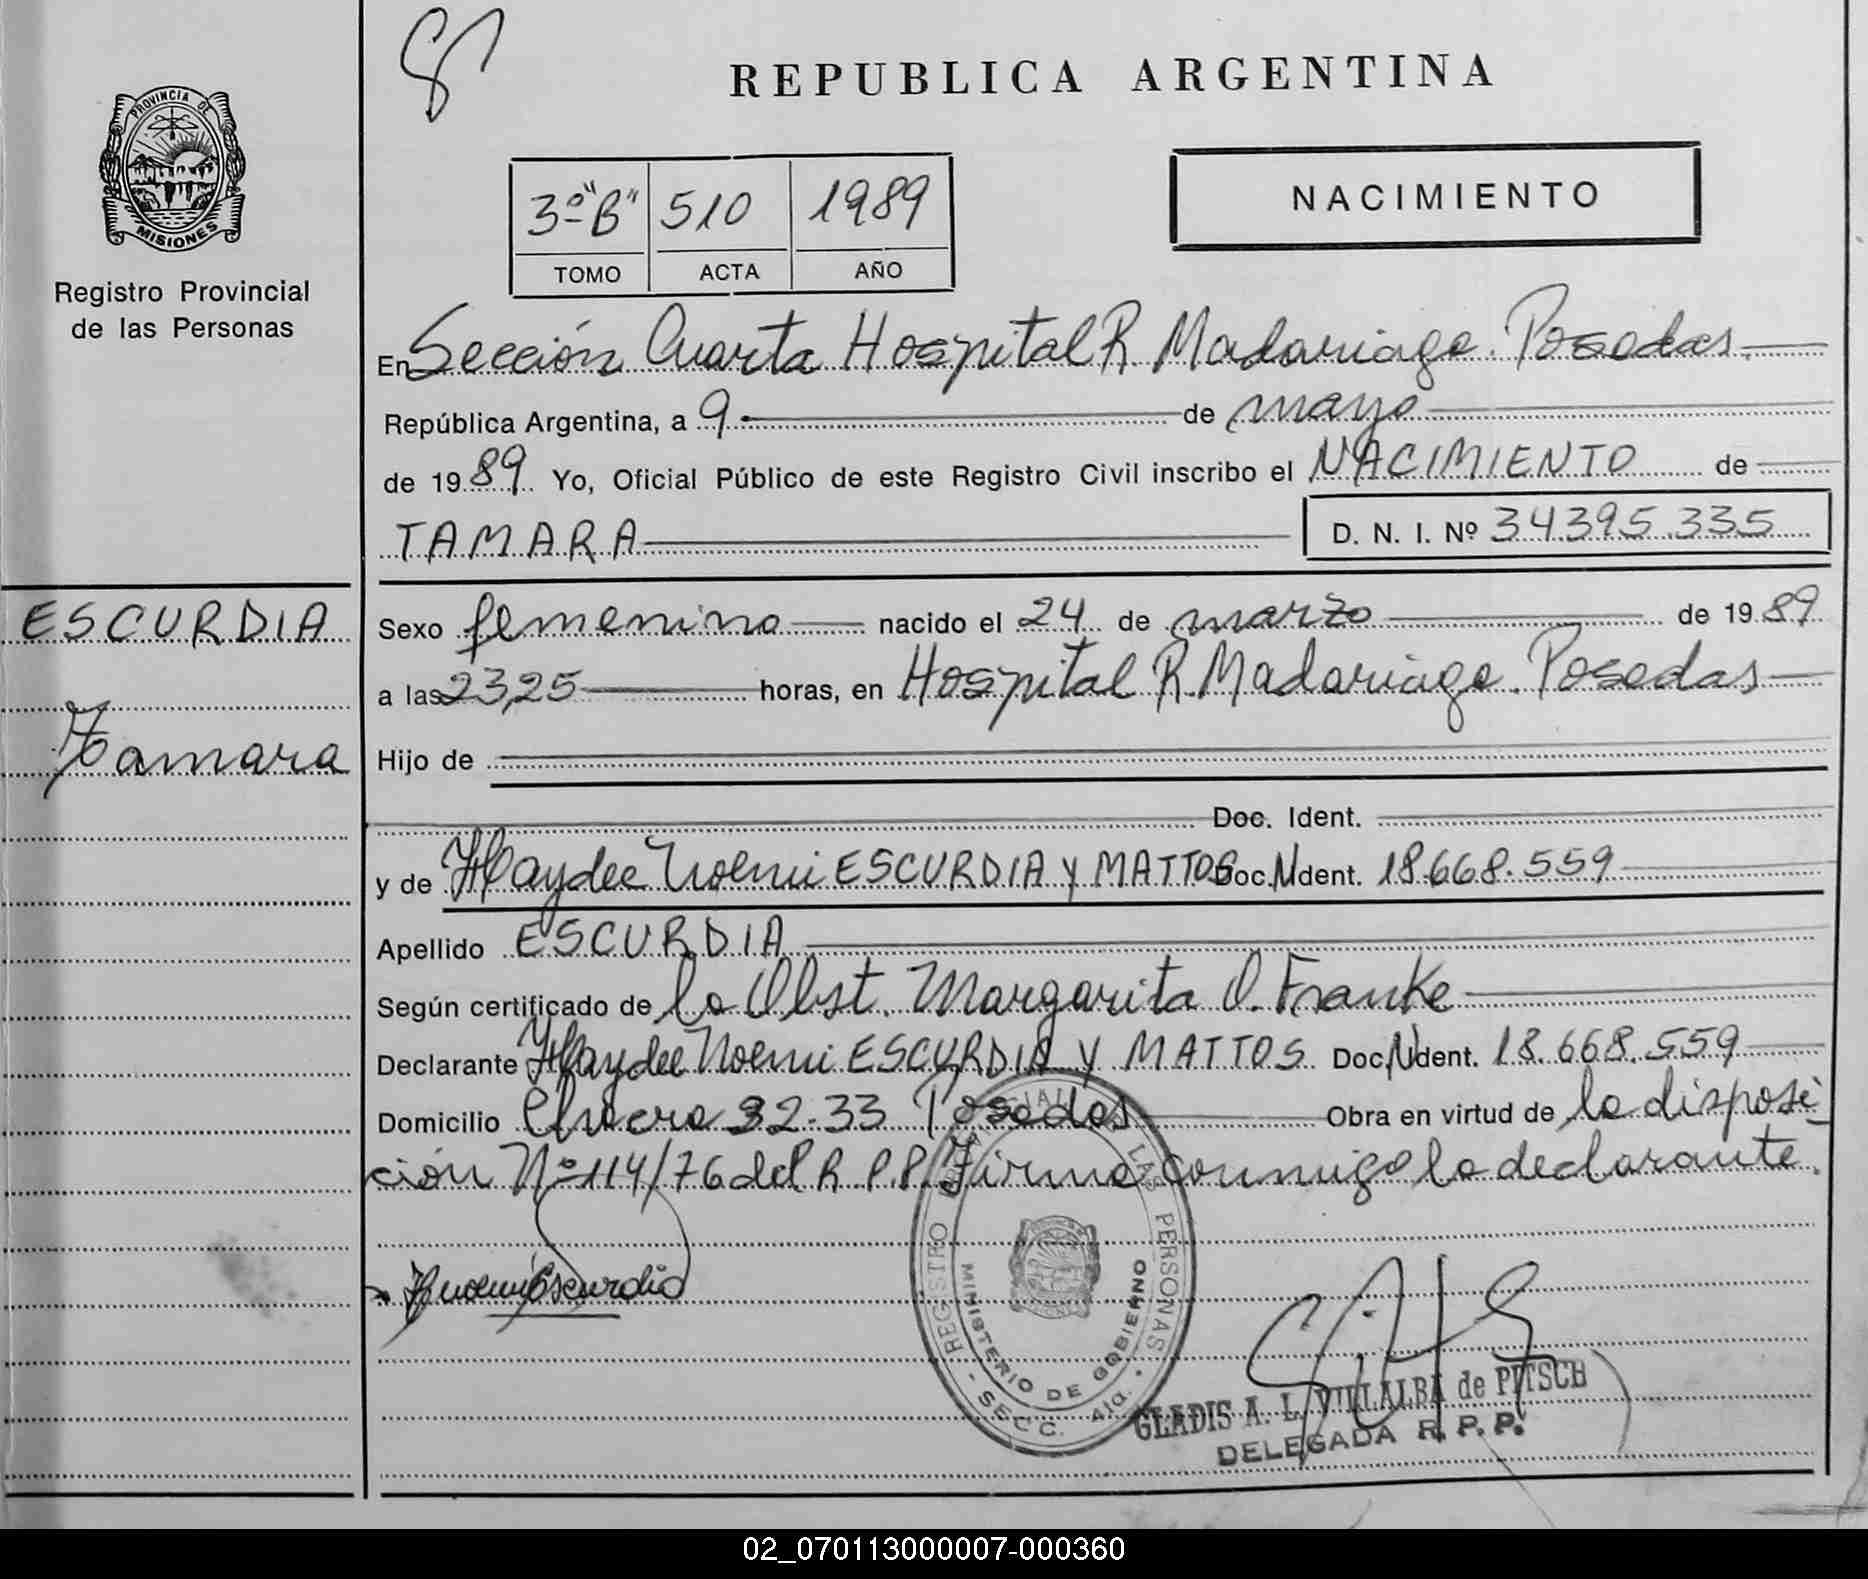 REPUBLICA ARGENTINA
PROVINCIA DE
MISIONES
Registro Provincial
de las Personas
NACIMIENTO
3º "B" 510 1989
TOMO ACTA AÑO
En Sección Cuarta Hospital R. Madariaga. Posadas.
República Argentina, a 9 de mayo
de 1989 Yo, Oficial Público de este Registro Civil inscribo el NACIMIENTO de
TAMARA D. N. I. Nº 34395.335
ESCURDIA
Tamara
Sexo femenino nacido el 24 de marzo de 1989
a las 23,25 horas, en Hospital R. Madariaga. Posadas
Hijo de
Doc. Ident.
y de Haydee Noemi ESCURDIA Y MATTOS Doc. N Ident. 18.668.559
Apellido ESCURDIA
Según certificado de la Obst. Margarita O. Franke
Declarante Haydee Noemi ESCURDIA Y MATTOS Doc. N Ident. 18.668.559
Domicilio 32-33 Posadas Obra en virtud de la disposi-
ción Nº 114/76 del R.P.P. Firma conmigo la declarante.
REGISTRO PROVINCIAL DE LAS PERSONAS
MINISTERIO DE GOBIERNO
- SECC. 4ta. -
H Noemi Escurdia
GLADIS A. L. VILLALBA de PITSCH
DELEGADA R. P. P.
02_070113000007-000360